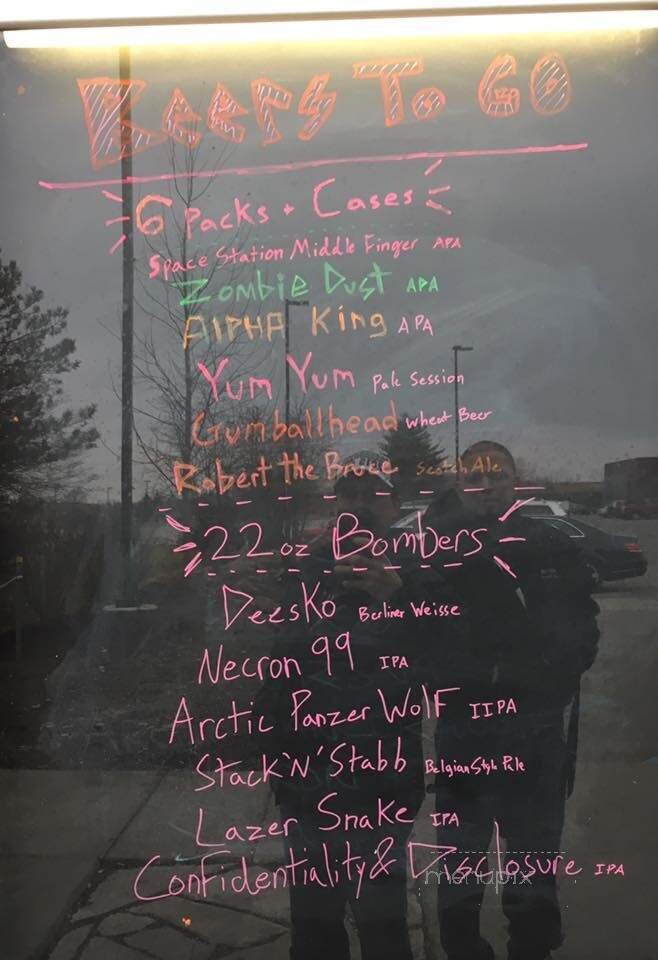 Beers To Go
6 Packs + Cases
Space Station Middle Finger APA
Zombie Dust APA
Alpha King APA
Yum Yum Pale Session
Gumballhead wheat Beer
Robert the Bruce Scotch Ale
22 oz Bombers
Deesko Berliner Weisse
Necron 99 IPA
Arctic Panzer Wolf IIPA
Stack 'N' Stabb Belgian Style Pale
Lazer Snake IPA
Confidentiality & Disclosure IPA
menupix